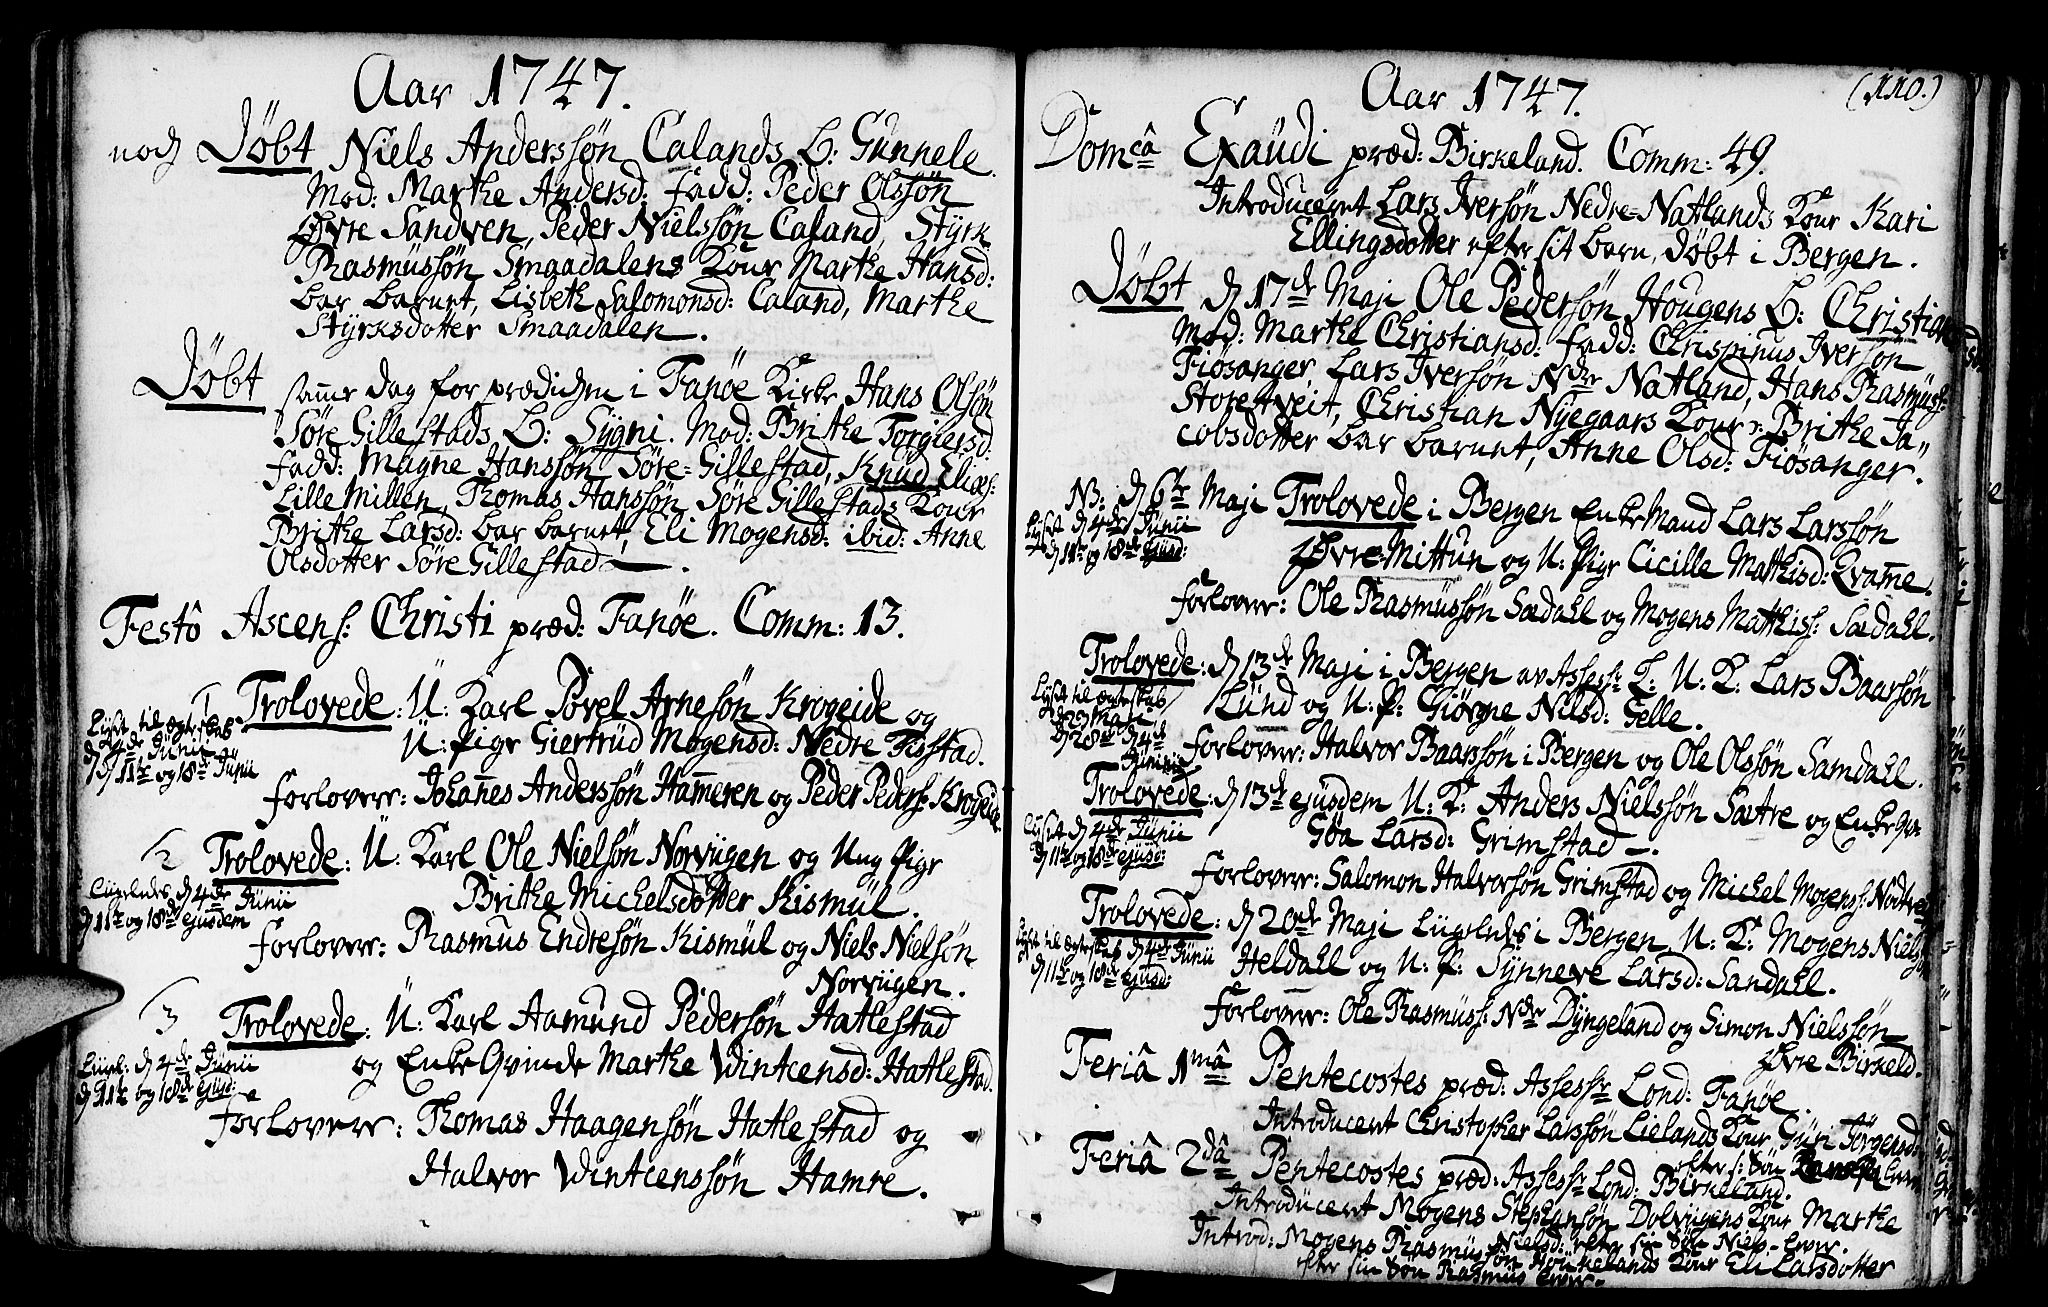 Aar 1747.
noch Döbt Niels Anderssön Calands B: Gunnele.
Mod: Marthe Andersd: fadd: Peder Olssön
Øvre Sandven, Peder Nielssön Caland, Styrk
Rasmussön Smaadalens Kone Marthe Hansd:
bar barnet, Lisbeth Salomonsd: Caland, Marthe
Styrksdotter Smaadalen.
Döbt samme dag for prædichen i Fanöe Kirke, Hans Olsön
Söre Gillestads B: Sygni. Mod: Brithe Torgiersd:
fadd: Magne Hanssön Söre-Gillestad, Knud Eliæs:
Lille Millen, Thomas Hanssön Söre Gillestads Kone
Brithe Larsd: bar barnet, Eli Mogensd: ibid: Anne
Olsdotter Söre Gillestad.
Festô Ascens: Christi præd: Fanöe. Comm: 13.
1 Trolovede: U: Karl Povel Arnesön Krogeide og
U: Pige Giertrud Mogensd: Nedre Tistad.
Lyst til egteskab
d 4de Junii
d 11te og 18de Junii
Forlovere: Johannes Anderssön Hammeren og Peder Peders: Krogeide
2 Trolovede: U: Karl Ole Nielsön Norvügen og Ung Pige
Brithe Michelsdotter Kismül.
Liusledes d 4de Junii
d 11te og 18de ejusdem
Forlovere: Rasmus Endresön Kismül og Niels Nielsön
Norvügen.
3 Trolovede: U: Karl Aamund Pedersön Hatlestad
og Enke Qvinde Marthe Wintcensd: Hatlestad.
Liusl: d 4de Junii
d 11te og 18de ejusd:
Forlovere: Thomas Haagensön Hatlestad og
Halvor Wintcenssön Hamre.
Aar 1747. (110.)
Domcâ Exaudi præd: Birkeland. Comm: 49.
Introduceret Lars Iversön Nedre-Natlands Kone Kari
Ellingsdotter efter sit barn, döbt i Bergen.
Döbt d 17de Maji Ole Pedersön Hougens B: Christian
Mod: Marthe Christiansd: fadd: Chrispinus Iversön
Fiösanger, Lars Iversön Ndre Natland, Hans Rasmuss:
Storetveit, Christian Nyegaars Kone Brithe Ja-
cobsdotter bar barnet, Anne Olsd: Fiösanger.
NB: d 6te Maji Trolovede i Bergen Enke Mand Lars Larssön
Øvre-Mittun og U: Pige Cicille Mathisd: Qvamme.
Lyst d 4de Junii
d 11te og 18de ejusd:
Forlovere: Ole Rasmussön Sædahl og Mogens Matthiss: Sædahl.
Trolovede: d 13de Maji i Bergen av Assess: L: U: K: Lars Baarsön
Lund og U: P: Giörne Nilsd: Gelle.
Lyst til egteskab
d 23 Maji
d 28de d 4de
Junii
Forlovere: Halvor Baarssön i Bergen og Ole Olssön Samdahl.
Trolovede: d 13de ejusdem U: K: Anders Nielssön Sætre og Enke Qv:
Göa Larsd: Grimstad.
Lyst d 4de Junii
d 11te og 18de ejusd:
Forlovere: Salomon Halvorsön Grimstad og Michel Mogens: Nodtvet
Trolovede: d 20de Maji Liusledes i Bergen, U: K: Mogens Niels:
Heldahl og U: P: Synneve Larsd: Sandahl.
Lyst til egteskab d 4de Junii
d 11te og 18de ejusd:
Forlovere: Ole Rasmuss: Ndre Dyngeland og Simon Nielssön
Øvre Birkeld.
Feriâ 1mâ Pentecostes præd: Assessr Lond: Fanöe.
Introduceret Christopher Larssön Lielands Kone Guri Jörgensd:
efter s: Sön
Feriâ 2dâ Pentecostes præd: Assessr Lond: Birkeland.
Introduceret Mogens Stephensön Dolvügens Kone Marthe
Nielsd: efter sin Sön Niels
Introd: Mogens Rasmussön Hönkelands Kone Eli Larsdotter
efter sin Sön Rasmus